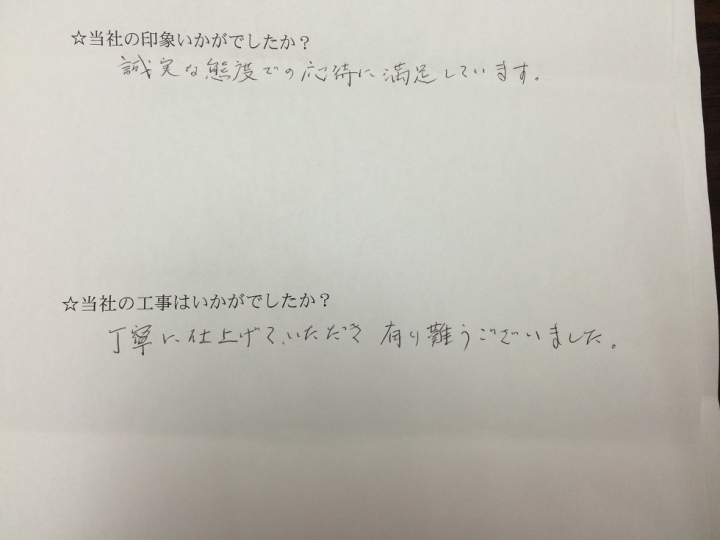 ☆当社の印象いかがでしたか？
誠実な態度での応待に満足しています。
☆当社の工事はいかがでしたか？
丁寧に仕上げていただき 有り難うございました。